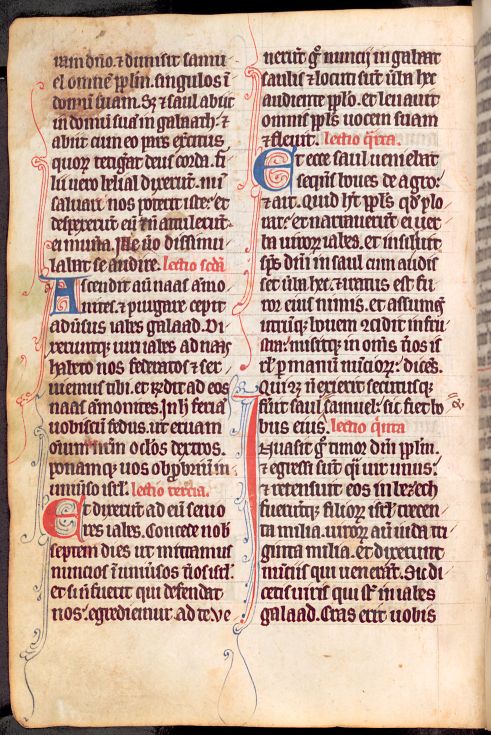 ram dño. ⁊ dimisit samu
el omnē pplm. singulos ī
domū suam. Sꝫ ⁊ saul abiit
in domū suā in gabaath. ⁊
abiit cum eo pars exc̓itus
quoꝝ tetig̓at deus corda. fi
lii uero belial dixerūt. nū
saluare nos poterit iste. et
despexerūt eū ⁊ n̄ attulerūt
ei mun̓a. Ille ūo dissimu
labat se audire. lectio scđa
Ascendit aū naas āmo
nites. ⁊ pugnare cepit
adūsus iabes galaad. Di
xeruntq; uiri iabes ad naas
habeto nos federatos ⁊ ser
uiemus tibi. et rñdit ad eos
naas āmonites. In h̓ feriā
uobiscū fedus. ut eruam
oīum ur̄m oc̓los dextros.
ponamq; uos obp̱briū in
uniūso isrl. lectio tercia.
Et dixerūt ad eū senio
res iabes. Concede nob̓
septem dies ut mittamus
nuncios ī uniūsos t̓mīos isrl.
et si n̄ fuerit qui defendat
nos. egrediemur ad te Ve
nerūt g̊ nuncij in gabaat
saulis ⁊ locuti sūt ūba hec
audiente pplo. et leuauit
omnis ppls uocem suam
⁊ fleuit. lectio q̓rta.
Et ecce saul ueniebat
sequēs boues de agro.
⁊ ait. Quid ht̄ ppls qđ plo
rat. et narrauerūt ei uer
ba uiroꝝ iabes. et insiluit
sp̄s dn̄i in saul cum audis
set ūba hec. ⁊ iratus est fu
ror eius nimis. et assumēs
utrūq; bouem ⁊cidit in frus
sta. misitq; in om̄s t̓mīos is
rl. p̱ manū nūcioꝝ. dicēs.
Qui⁊ꝫ n̄ exierit secutusq;
fūit saul ⁊ samuel. sic fiet bo
bus eius. lectio q̓nta
Inuasit g̊ timor dn̄i pplm.
⁊ egressi sūt q̓si uir unus.
⁊ recensuit eos in bezech
fueruntq; filioꝝ isrl trecen
ta milia. uiroꝝ aū iuda tri
ginta milia. Et dixerunt
nūtiis qui uenerāt. Sic di
cetis uiris qui st̄ in iabes
galaad. Cras erit uobis